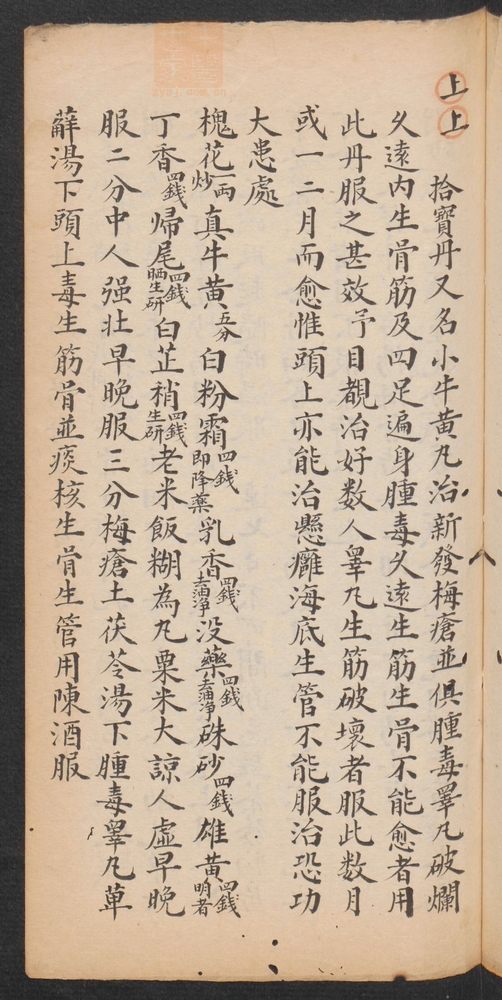 上上
拾寶丹又名小牛黄凢治新發梅瘡並俱腫毒睪凢破爛
久遠内生骨筋及四足遍身腫毒久遠生筋生骨不能愈者用
此丹服之甚效予目覩治好数人睪凢生筋破壞者服此数月
或一二月而愈惟頭上亦能治懸癰海底生管不能服治恐功
大患處
槐花一两炒真牛黄五分白粉霜四錢即降藥乳香四錢去油净没藥四錢去油净硃砂四錢雄黄四錢明者
丁香四錢歸尾四錢晒生研白芷稍四錢生研老米飯糊為凢粟米大諒人虚早晚
服二分中人强壮早晚服三分梅瘡土茯苓湯下腫毒睪凢萆
薢湯下頭上毒生筋骨並痰核生骨生管用陳酒服